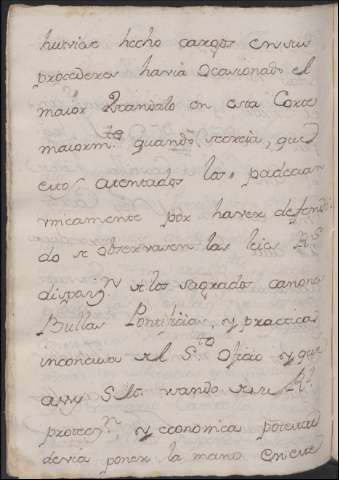 huviese hecho cargos en sus
procederes havia ocasionado el
maior Escandalo en esta Corte
maiorm.te quando se creia, que
estos atentados los padecian
unicamente por haver defendi
do se observasen las leies R.s
dispos.n de los sagrados canones
Bullas Pontificias, y practica
inconcusa del S.to Oficio y que
assi S.M. usando de su R.l
protecz.n, y economica potestad
devia poner la mano en este